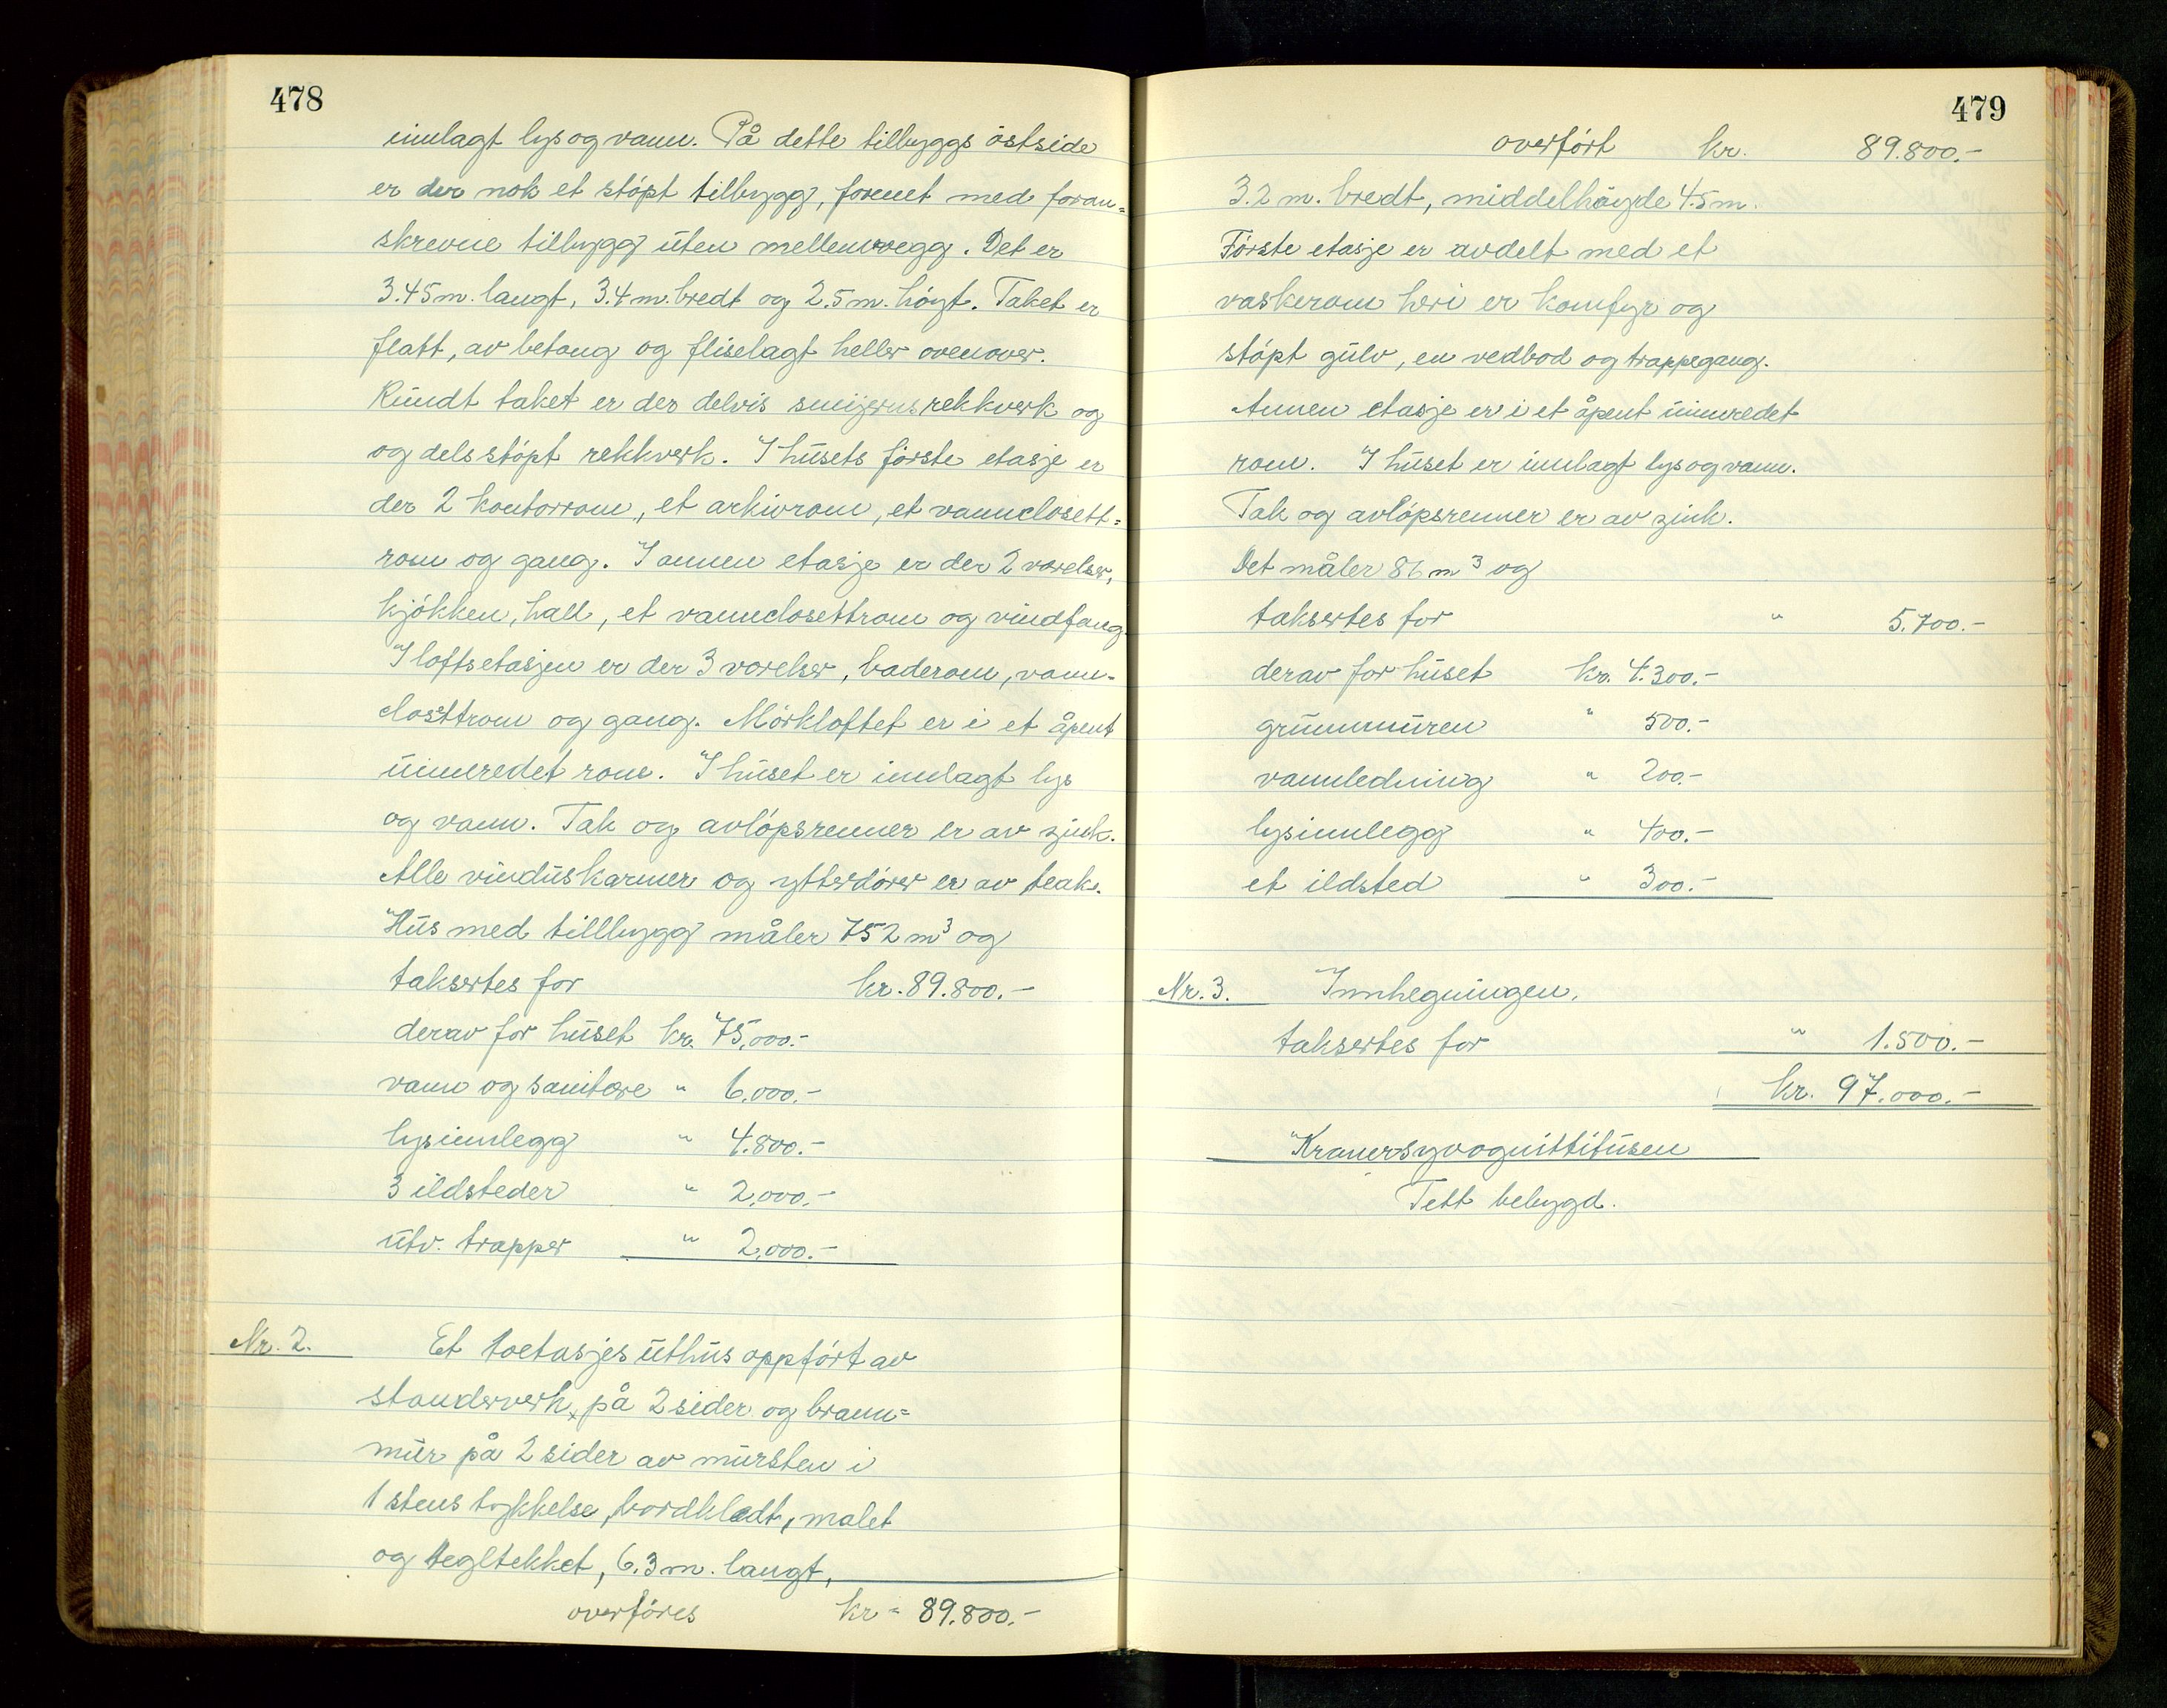 478
innlagt lys og vann. På dette tilbyggs östside
er der nok et stöpt tilbygg, forenet med foran=
skrevne tilbygg uten mellemvegg. Det er
3.45 m. langt, 3.4 m. bredt og 2.5 m. höyt. Taket er
flatt, av betong og fliselagt heller ovenover.
Rundt taket er der delvis smijernsrekkverk og
og dels stöpt rekkverk. I husets förste etasje er
der 2 kontorrom, et arkivrom, et vannclosett=
rom og gang. I annen etasje er der 2 værelser,
kjökken, hall, et vannclosettrom og vindfang.
I loftsetasjen er der 3 værelser, baderom, vann-
closettrom og gang. Mörkloftet er i et åpent
uinnredet rom. I huset er innlagt lys
og vann. Tak og avlöpsrenner er av zink.
Alle vinduskarmer og ytterdörer er av teak.
Hus med tillbygg måler 752 m³ og
taksertes for kr. 89.800.-
derav for huset kr. 75.000.-
vann og sanitære " 6.000.-
lysinnlegg " 4.800.-
3 ildsteder " 2.000.-
utv. trapper " 2.000.-
Nr. 2. Et toetasjes uthus oppfört av
standerverk på 2 sider og brann=
mur på 2 sider av mursten i
1 stens tykkelse, bordklædt, malet
og tegltekket, 6.3 m. langt,
overföres kr " 89.800.-
479
overfört kr. 89.800.-
3.2 m. bredt, middelhöyde 4.5 m.
Förste etasje er avdelt med et
vaskerom heri er komfyr og
stöpt gulv, en vedbod og trappegang.
Annen etasje er i et åpent uinnredet
rom. I huset er innlagt lys og vann.
Tak og avlöpsrenner er av zink.
Det måler 86 m³ og
taksertes for " 5.700.-
derav for huset kr. 4.300.-
grunnmuren " 500.-
vannledning " 200.-
lysinnlegg " 400.-
et ildsted " 300.-
Nr. 3. Innhegningen.
taksertes for " 1.500.-
kr. 97.000.-
Tett bebygd.